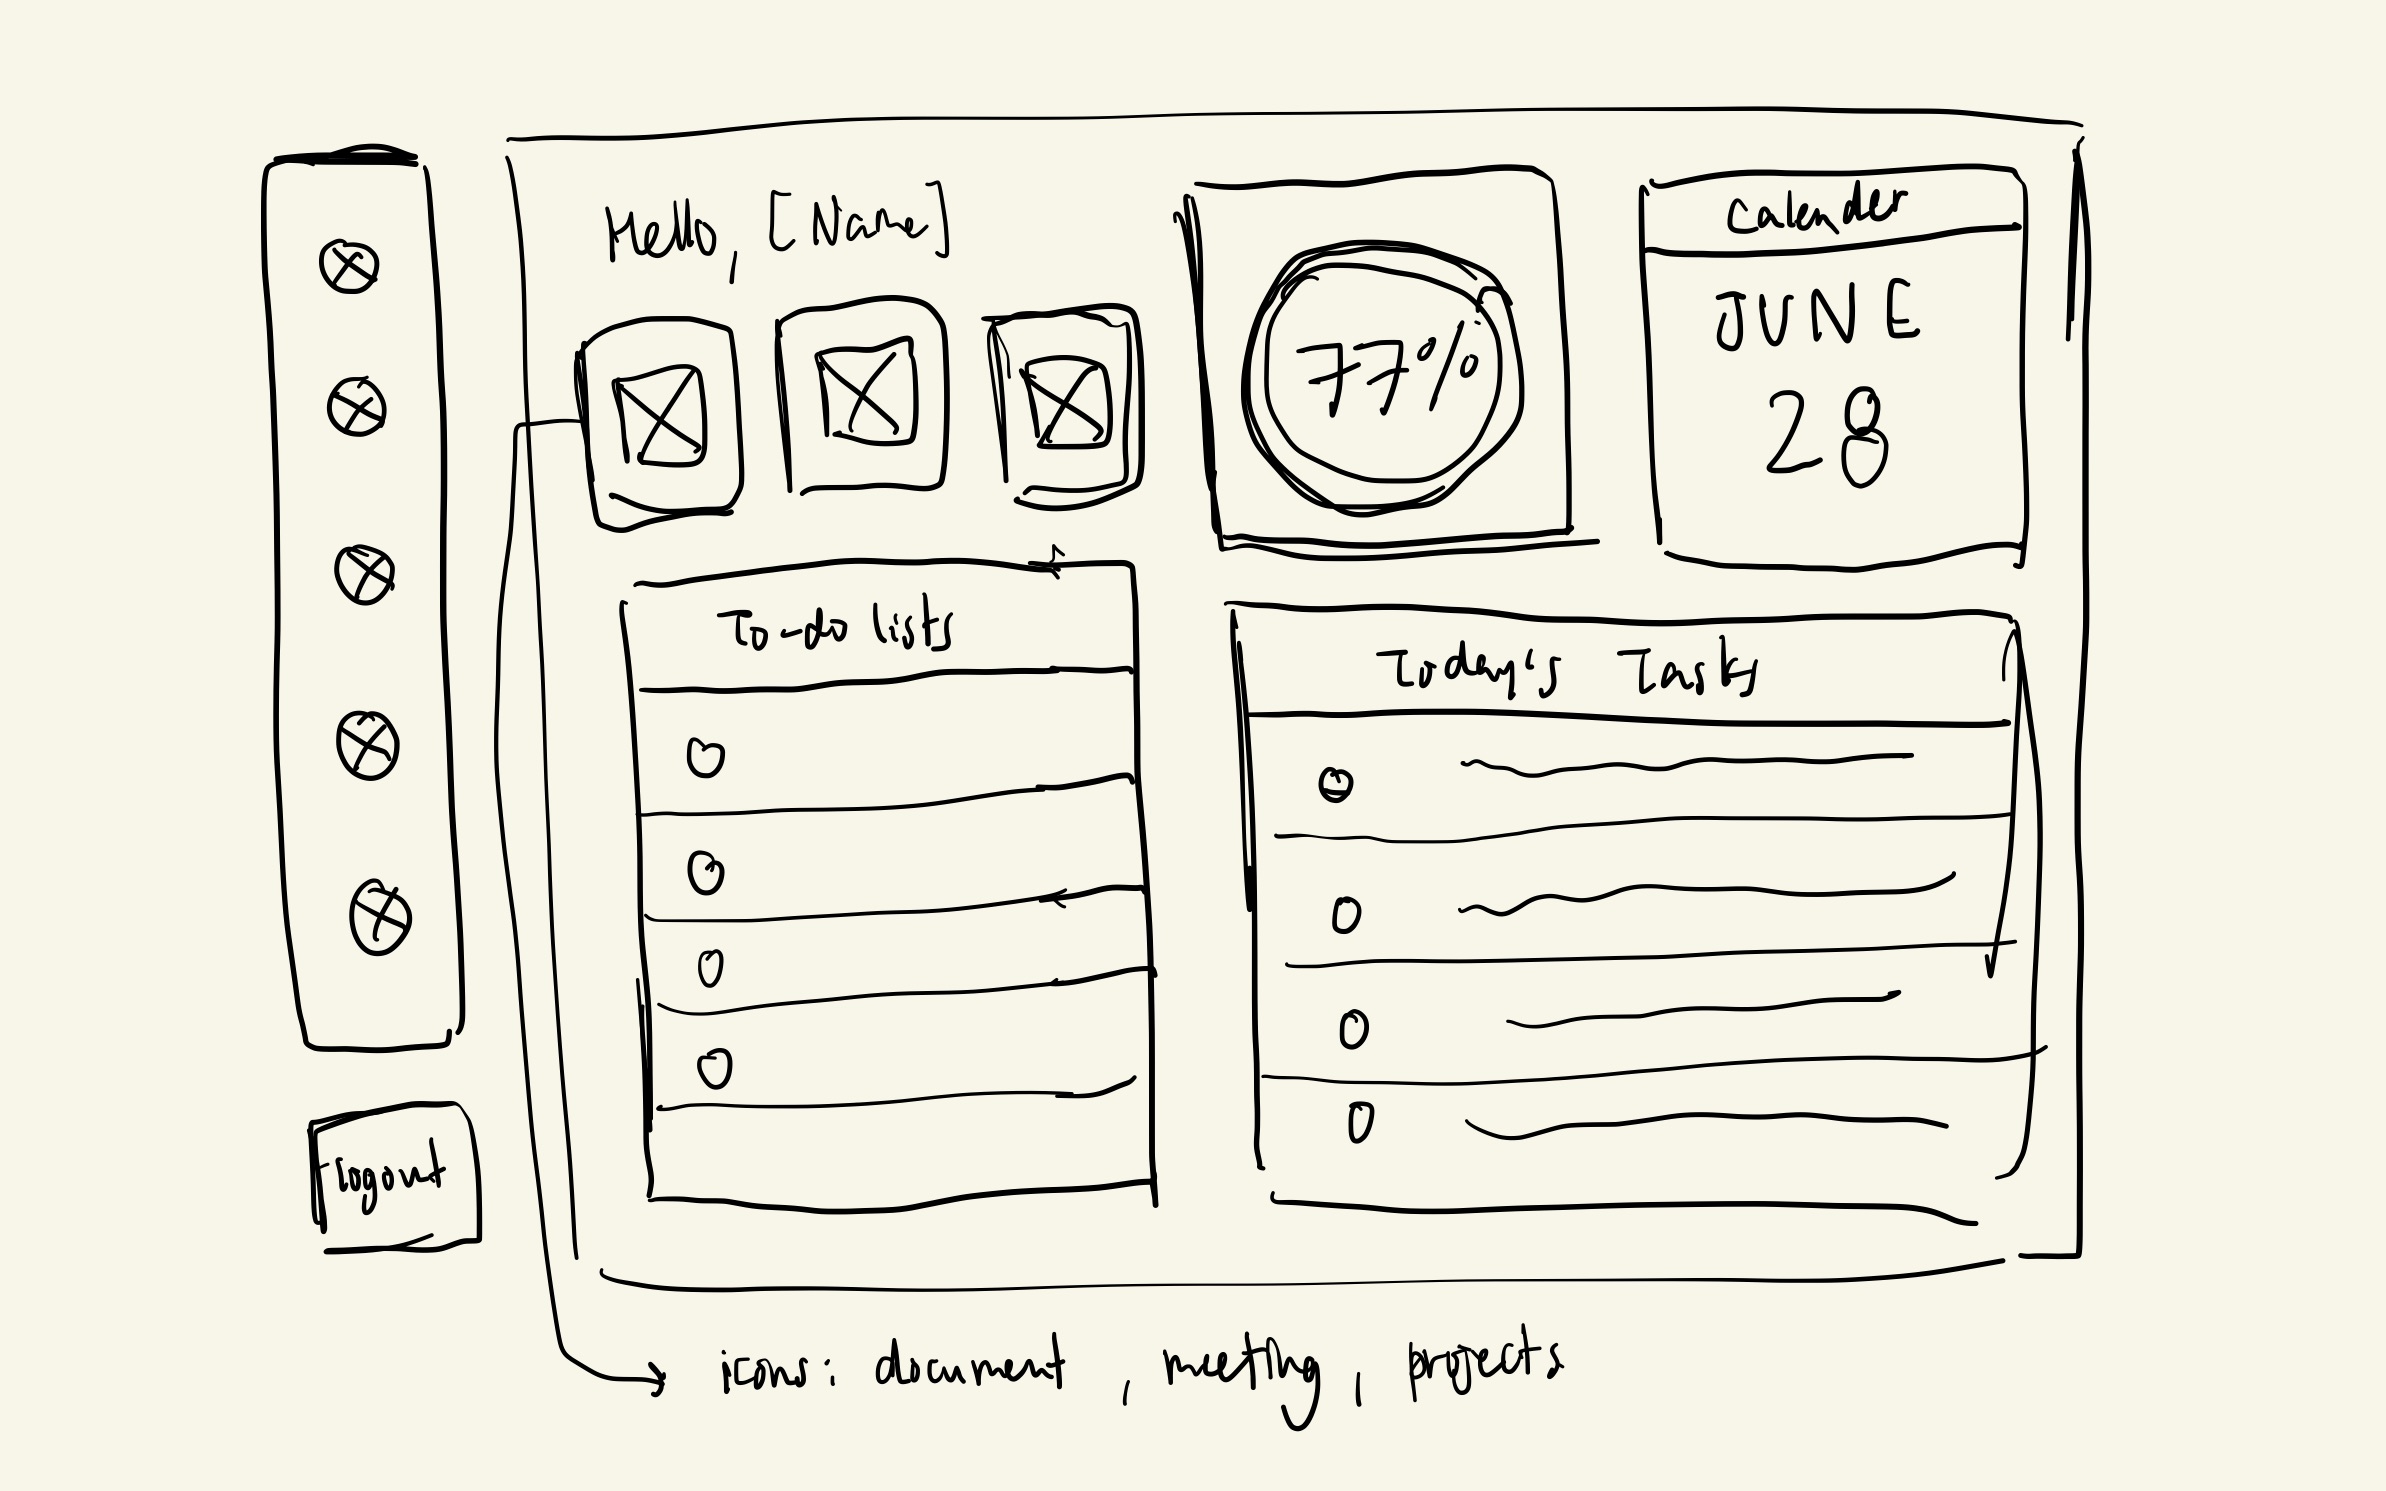 Hello, [Name]
77%
Calender
JUNE
28
To-do lists
Today's Tasks
logout
icons: document, meeting, projects